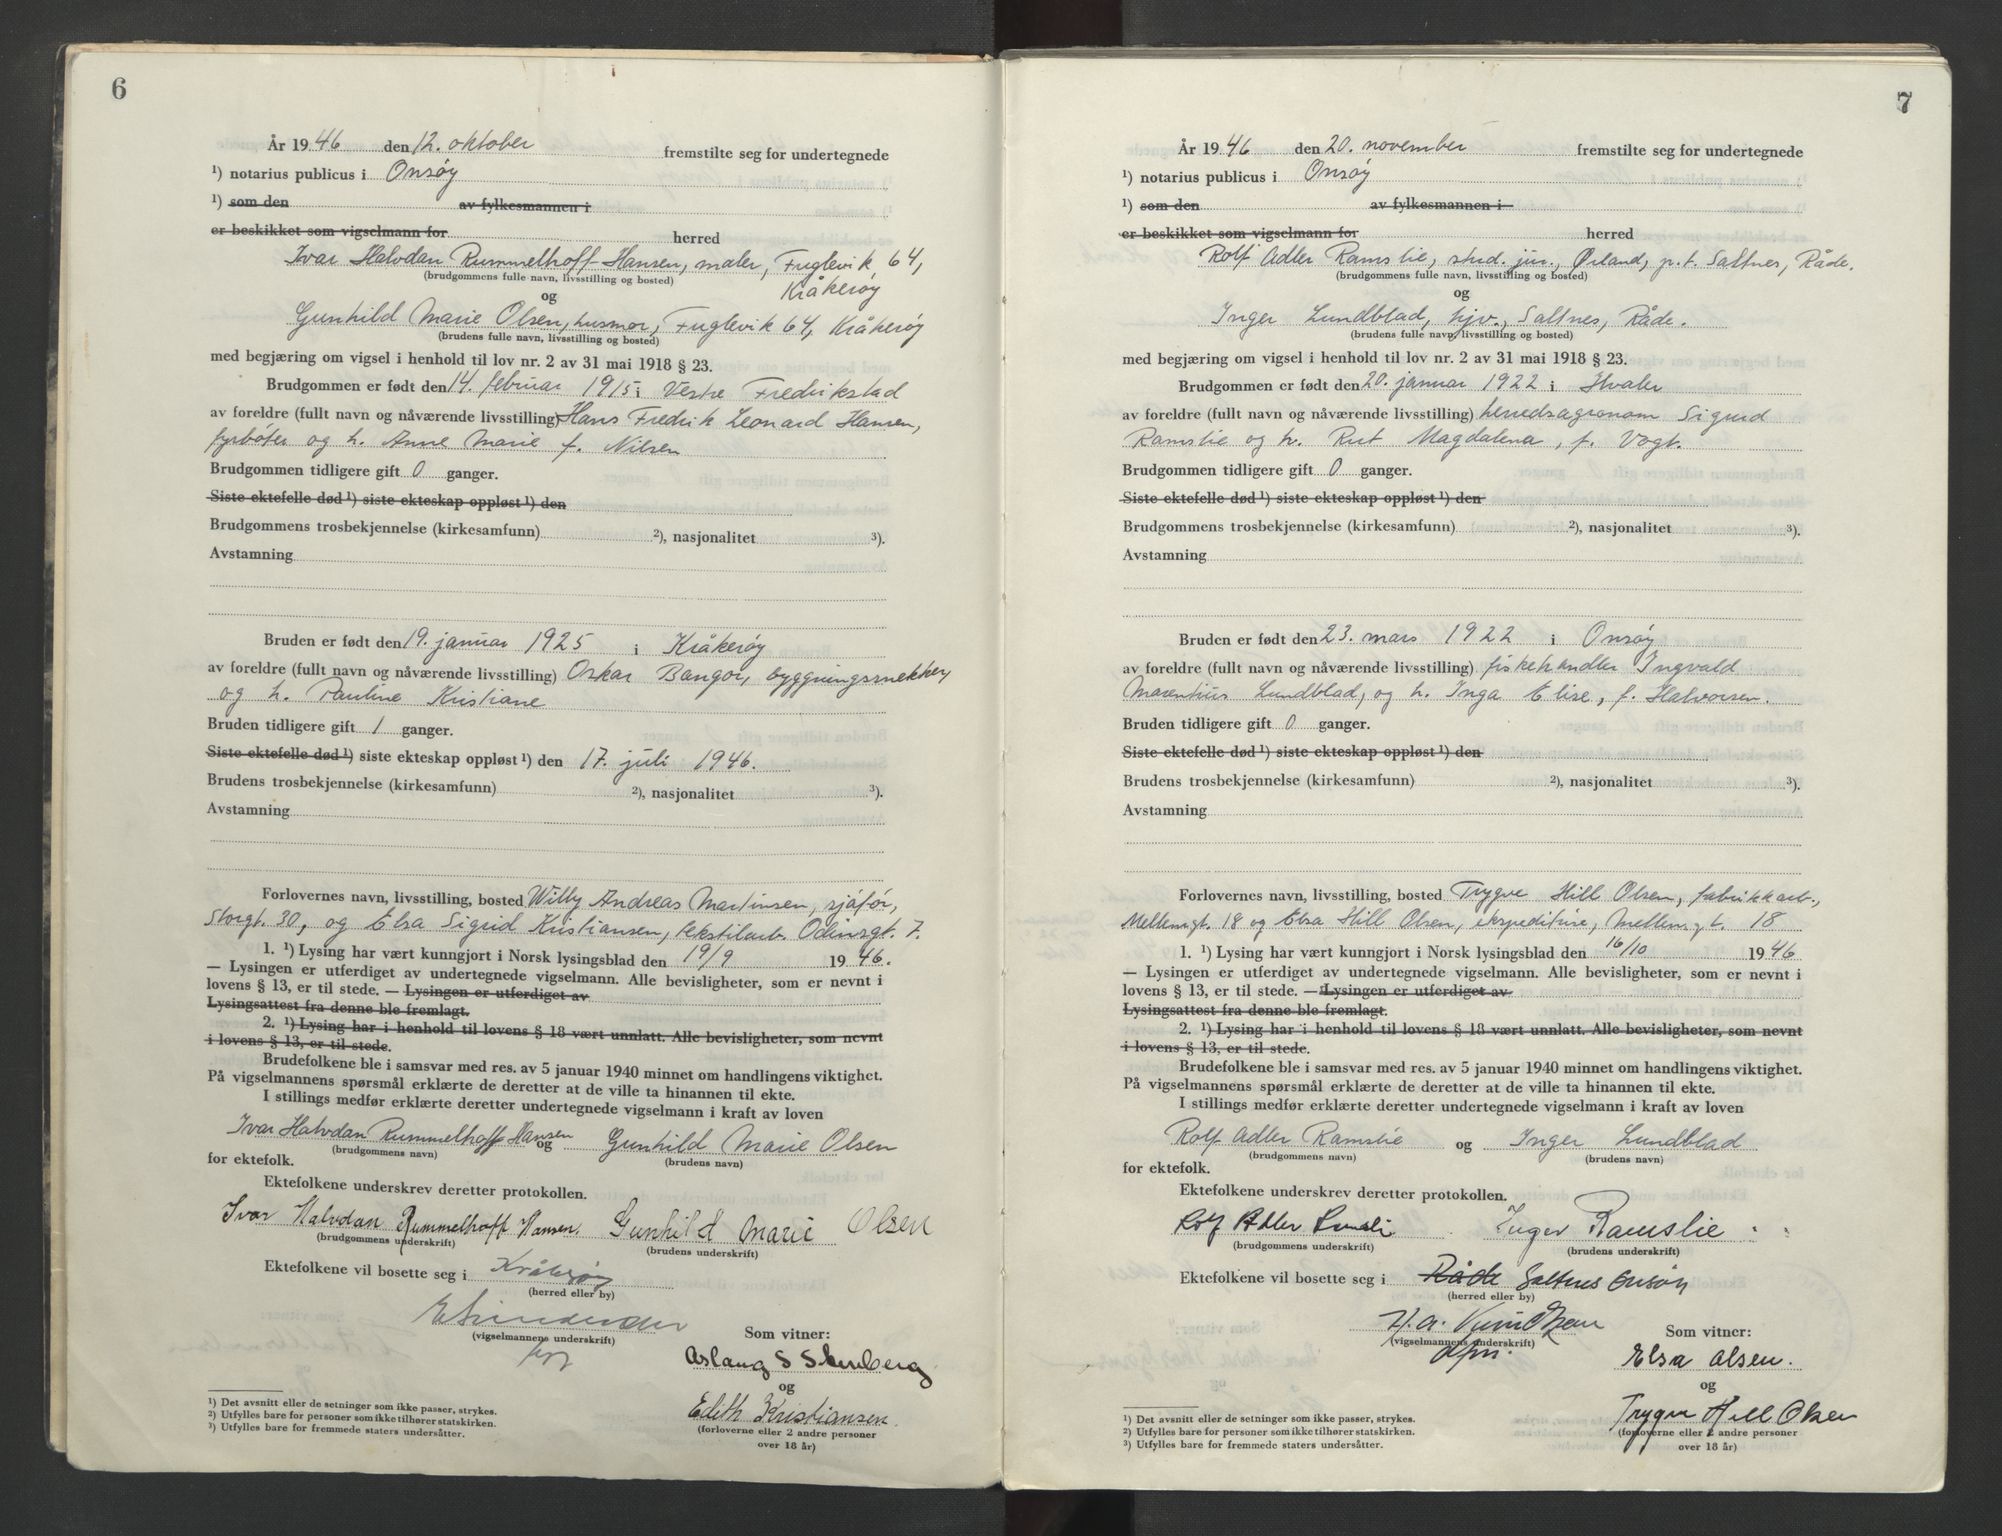 6
År 1946 den 12. oktober fremstilte seg for undertegnede
¹) notarius publicus i Onsøy
¹) som den av fylkesmannen i
er beskikket som vigselmann for herred
Ivar Halvdan Rummelhoff-Hansen, maler, Fuglevik 64,
(brudgommens fulle navn, livsstilling og bosted)
Kråkerøy
og
Gunhild Marie Olsen, husmor, Fuglevik 64, Kråkerøy
(brudens fulle navn, livsstilling og bosted)
med begjæring om vigsel i henhold til lov nr. 2 av 31 mai 1918 § 23.
Brudgommen er født den 14. februar 1915 i Vestre Fredrikstad
av foreldre (fullt navn og nåværende livsstilling) Hans Fredrik Leonard Hansen,
fyrbøter og h. Anne Marie f. Nilsen
Brudgommen tidligere gift 0 ganger.
Siste ektefelle død ¹) siste ekteskap oppløst ¹) den
Brudgommens trosbekjennelse (kirkesamfunn) ²), nasjonalitet ³).
Avstamning
Bruden er født den 19. januar 1925 i Kråkerøy
av foreldre (fullt navn og nåværende livsstilling) Oskar Bangor, byggningssnekker,
og h. Pauline Kristiane
Bruden tidligere gift 1 ganger.
Siste ektefelle død ¹) siste ekteskap oppløst ¹) den 17. juli 1946.
Brudens trosbekjennelse (kirkesamfunn) ²), nasjonalitet ³).
Avstamning
Forlovernes navn, livsstilling, bosted Willy Andreas Martinsen, sjåfør,
Storgt. 30, og Elsa Sigrid Kristiansen, tekstilarb. Odinsgt. 7.
1. ¹) Lysing har vært kunngjort i Norsk lysingsblad den 19/9 1946.
— Lysingen er utferdiget av undertegnede vigselmann. Alle bevisligheter, som er nevnt i
lovens § 13, er til stede. — Lysingen er utferdiget av
Lysingsattest fra denne ble fremlagt.
2. ¹) Lysing har i henhold til lovens § 18 vært unnlatt. Alle bevisligheter, som nevnt
i lovens § 13, er til stede.
Brudefolkene ble i samsvar med res. av 5 januar 1940 minnet om handlingens viktighet.
På vigselmannens spørsmål erklærte de deretter at de ville ta hinannen til ekte.
I stillings medfør erklærte deretter undertegnede vigselmann i kraft av loven
Ivar Halvdan Rummelhoff Hansen og Gunhild Marie Olsen
(brudgommens navn) (brudens navn)
for ektefolk.
Ektefolkene underskrev deretter protokollen.
Ivar Halvdan Rummelhoff Hansen. Gunhild Marie Olsen
(brudgommens underskrift) (brudens underskrift)
Ektefolkene vil bosette seg i Kråkerøy
(herred eller by)
(vigselmannens underskrift)
Som vitner:
Aslaug S Stenberg
og
Edith Kristiansen.
(forloverne eller 2 andre personer
over 18 år)
¹) Det avsnitt eller de setninger som ikke passer, strykes.
²) Utfylles bare for personer som ikke tilhører statskirken.
³) Utfylles bare for fremmede staters undersåtter.
7
År 1946 den 20. november fremstilte seg for undertegnede
¹) notarius publicus i Onsøy
¹) som den av fylkesmannen i
er beskikket som vigselmann for herred
Rolf Adler Ramslie, stud. jur., Ørland, p.t. Saltnes, Råde.
(brudgommens fulle navn, livsstilling og bosted)
og
Inger Lundblad, hjv., Saltnes, Råde.
(brudens fulle navn, livsstilling og bosted)
med begjæring om vigsel i henhold til lov nr. 2 av 31 mai 1918 § 23.
Brudgommen er født den 20. januar 1922 i Hvaler
av foreldre (fullt navn og nåværende livsstilling) herredsagronom Sigurd
Ramslie og h. Rut Magdalena, f. Vogt.
Brudgommen tidligere gift 0 ganger.
Siste ektefelle død ¹) siste ekteskap oppløst ¹) den
Brudgommens trosbekjennelse (kirkesamfunn) ²), nasjonalitet ³).
Avstamning
Bruden er født den 23. mars 1922 i Onsøy
av foreldre (fullt navn og nåværende livsstilling) fiskehandler Ingvald
Marentius Lundblad, og h. Inga Elise, f. Halvorsen.
Bruden tidligere gift 0 ganger.
Siste ektefelle død ¹) siste ekteskap oppløst ¹) den
Brudens trosbekjennelse (kirkesamfunn) ²), nasjonalitet ³).
Avstamning
Forlovernes navn, livsstilling, bosted Trygve Hill Olsen, fabrikkarb.,
Mellemgt. 18 og Elsa Hill Olsen, ekspeditrise, Mellemgt. 18
1. ¹) Lysing har vært kunngjort i Norsk lysingsblad den 16/10 1946
— Lysingen er utferdiget av undertegnede vigselmann. Alle bevisligheter, som er nevnt i
lovens § 13, er til stede. — Lysingen er utferdiget av
Lysingsattest fra denne ble fremlagt.
2. ¹) Lysing har i henhold til lovens § 18 vært unnlatt. Alle bevisligheter, som nevnt
i lovens § 13, er til stede.
Brudefolkene ble i samsvar med res. av 5 januar 1940 minnet om handlingens viktighet.
På vigselmannens spørsmål erklærte de deretter at de ville ta hinannen til ekte.
I stillings medfør erklærte deretter undertegnede vigselmann i kraft av loven
Rolf Adler Ramslie og Inger Lundblad
(brudgommens navn) (brudens navn)
for ektefolk.
Ektefolkene underskrev deretter protokollen.
Rolf Adler Inger Ramslie
(brudgommens underskrift) (brudens underskrift)
Ektefolkene vil bosette seg i Råde Saltnes Onsøy
(herred eller by)
(vigselmannens underskrift)
Som vitner:
Elsa Olsen.
og
Trygve Hill Olsen
(forloverne eller 2 andre personer
over 18 år)
¹) Det avsnitt eller de setninger som ikke passer, strykes.
²) Utfylles bare for personer som ikke tilhører statskirken.
³) Utfylles bare for fremmede staters undersåtter.